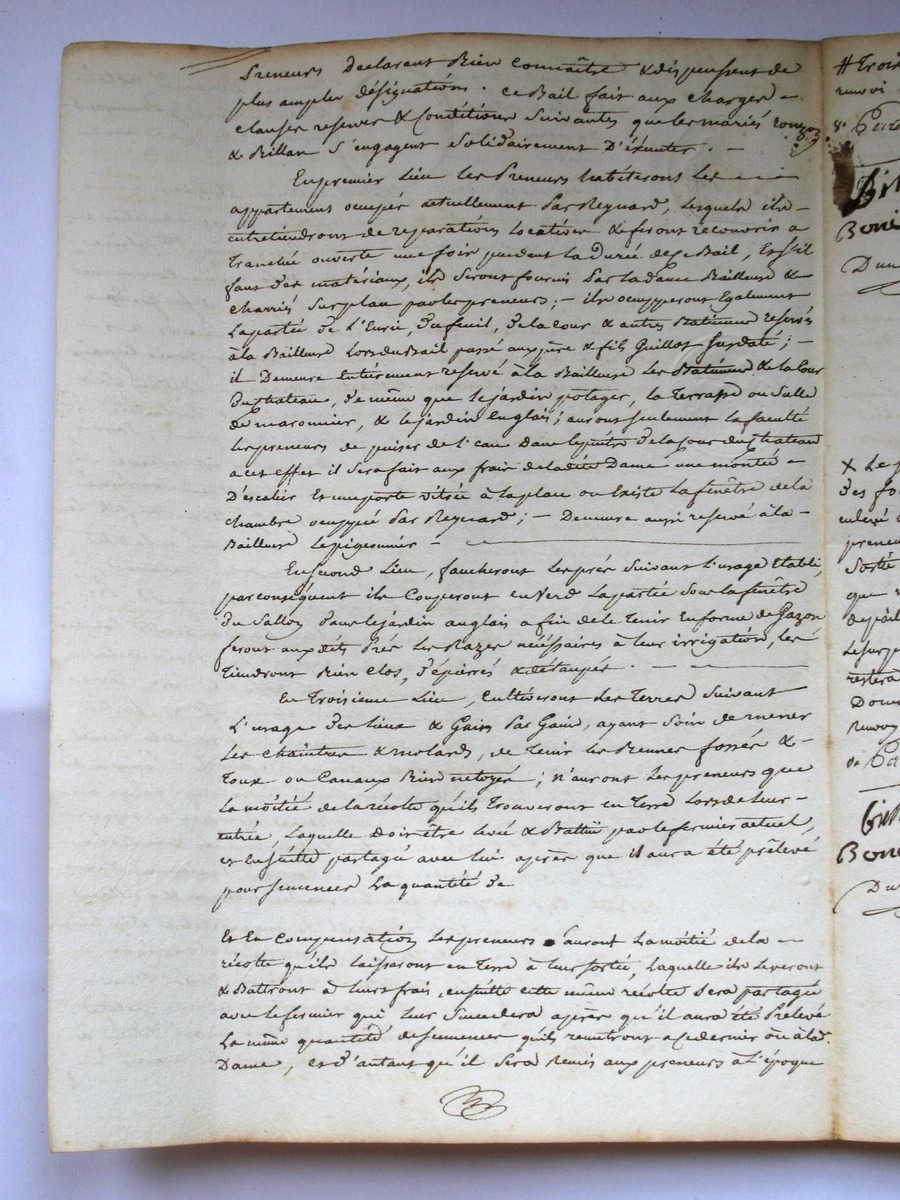 Preneurs Declarent Bien Connaître & dispensent de
plus amples désignations. Ce Bail fait aux Charges –
clauses reserves & Conditions Suivantes que les mariés
& Billan S'engagent Solidairement D'éxécuter. –
En premier Lieu les Preneurs habiteront Les
appartement occupés actuellement Par Reynard, lesquels ils
entretiendront de reparations Locatives & feront recouvrir a
Tranchée ouverte une fois pendant la Durée de ce Bail, Et s'il
faut des matériaux, ils Seront fournis Par la Dame Bailleuse &
Charriés Sur place par les preneurs; – ils occupperont Egalement
La partie de L'Ecurie, Du feuil, De la Cour & autres Batiment reservés
à la Bailleuse Lors du Bail passé aux père & fils Guillot Susdaté; –
il Demeure Entiérement reservé à la Bailleuse les Batiments & la Cour
Du chateau, De même que le jardin potager, la Terrasse ou Salle
De maronnier, & le jardin Englais; auront seulement la faculté
les preneurs de puiser de l'eau Dans le puits De la Cour du Chateau
a cet effet il Sera fait aux frais de ladite Dame une montée –
D'escalier Et une porte vitrée à la place ou Existe La fenêtre de la
chambre occuppée Par Reynard; – Demeure aussi reservé à la –
Bailleuse Le pigeonnier –
En Second Lieu, faucheront les prés Suivant L'usage Etabli,
par conséquent ils Couperont en Verd La partie Sous la fenêtre
du Sallon Dans le jardin anglais afin de le Tenir En forme de Gazon
feront aux dits Prés les Razes nécéssaires à leur irrigation, les
Tiendront Bien Clos, D'épierrés & détaupés. –
En Troisième Lieu, Cultiveront les Terres Suivant
L'usage des lieux & Gain Par Gain, ayant Soin de mener
Les Chaintres & molards, de Tenir les fossés &
ou Canaux Bien netoyés; n'auront Les preneurs que
La môitié de la récolte qu'ils Trouveront en Terre Lors de Leur
entrée, Laquelle Doit être Levée & Battüe par le fermier actuel,
et Ensuitte partagée avec lui après que il aura été prélevé
pour Semences La quantité de
Et En Compensation Les preneurs auront La môitié de la –
récolte qu'ils laisseront en Terre à leur Sortie, Laquelle ils Leveront
& Battront à leurs frais, ensuitte cette même récolte Sera partagée
avec le fermier qui leur Succedera après qu'il aura été Prélevé
La même quantité de Semences qu'ils remettront a ce dernier ou à lad.
Dame, et D'autant qu'il Sera Remis aux preneurs à L'époque
renvoi
Boni
X Le
Des fo
enlevé
preneu
Sortie
que
Le surp
restera
Renvoy
Boni